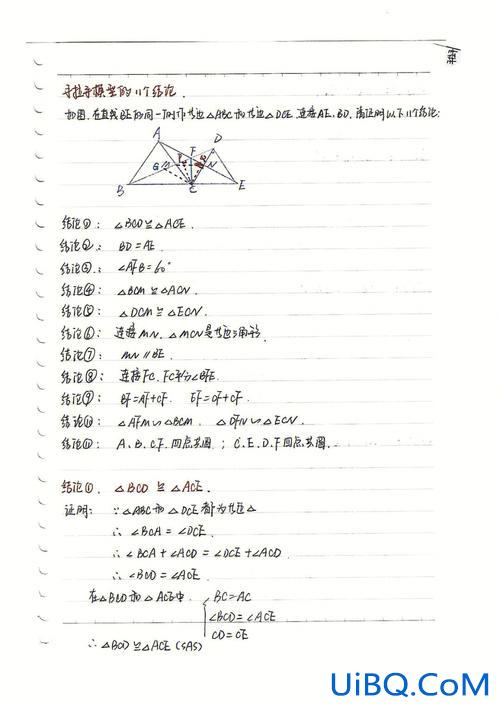 手拉手模型的11个结论.
如图.在直线BE的同一侧作等边△ABC和等边△DCE.连接AE、BD.请证明以下11个结论:
A
D
F
G
M
N
B
C
E
结论①: △BCD≌△ACE.
结论②: BD=AE.
结论③: ∠AFB=60°
结论④: △BCM≌△ACN.
结论⑤: △DCM≌△ECN.
结论⑥: 连接MN.△MCN是等边三角形.
结论⑦: MN∥BE.
结论⑧: 连接FC.FC平分∠BFE.
结论⑨: BF=AF+CF. EF=DF+CF.
结论⑩: △AFM∽△BCM. △DFN∽△ECN.
结论⑪: A、B、C、F.四点共圆; C、E、D、F四点共圆.
结论①. △BCD≌△ACE.
证明: ∵△ABC和△DCE都为等边△
∴ ∠BCA=∠DCE.
∴ ∠BCA+∠ACD=∠DCE+∠ACD.
∴ ∠BCD=∠ACE.
在△BCD和△ACE中. BC=AC
∠BCD=∠ACE
CD=CE
∴△BCD≌△ACE(SAS)
UiBQ.CoM